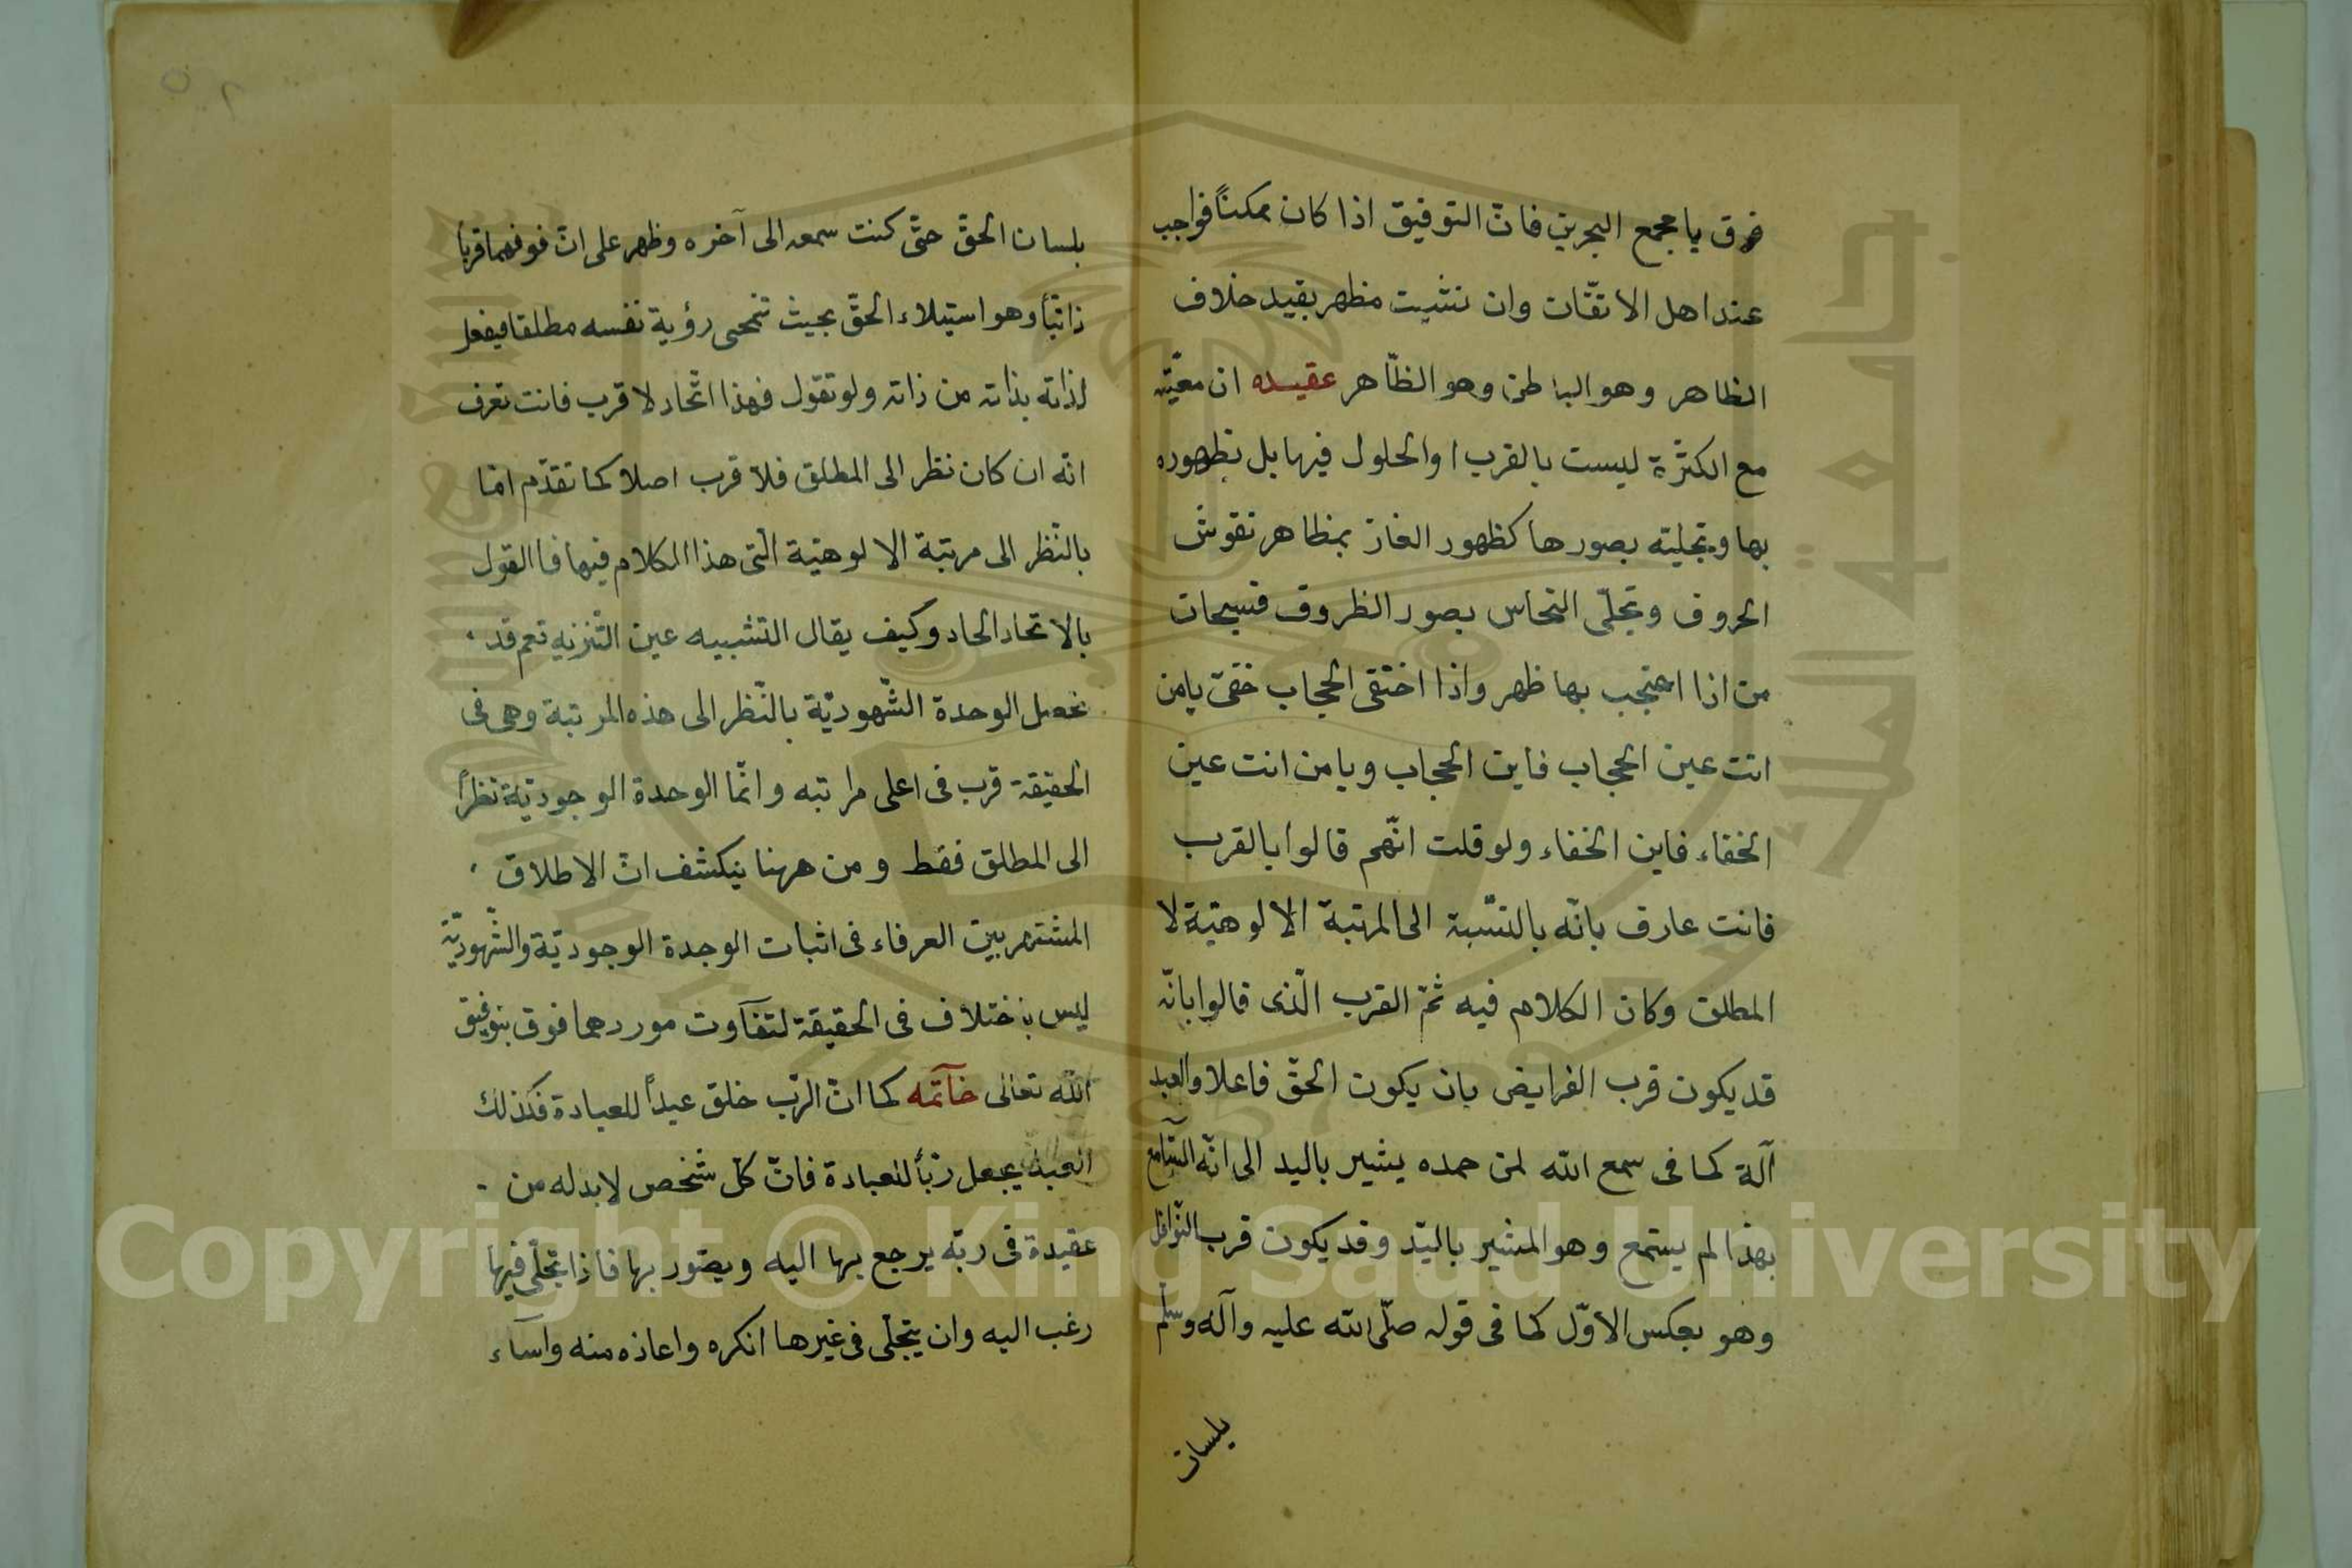 فرق يا مجمع البحرين فانّ التوفيق اذا كان ممكناً فواجب
عند اهل الاتقان وان تثبت مظهر بقيد خلاف
الظاهر وهو الباطن وهو الظّاهر عقيده ان معيّته
مع الكثرة ليست بالقرب او الحلول فيها بل بظهوره
بها وتجليته بصورها كظهور الغاز بمظاهر نقوش
الحروف وتجلّى النحاس بصور الظروف فسبحان
من اذا احتجب بها ظهر واذا اختفى الحجاب خفى يا من
انت عين الحجاب فاين الحجاب ويا من انت عين
الخفاء فاين الخفاء ولو قلت انّهم قالوا بالقرب
فانت عارف بانّه بالنّسبة الى المرتبة الالوهيّة لا
المطلق وكان الكلام فيه ثمّ القرب الّذى قالوا بانّه
قد يكون قرب الفرايض بان يكون الحقّ فاعلا والعبد
آلة كما فى سمع الله لمن حمده يشير باليد الى انّه السّامع
بهذا لم يستمع وهو المشير باليّد وقد يكون قرب النّوافل
وهو بعكس الاوّل كما فى قوله صلّى الله عليه وآله وسلّم
بلسان
بلسان الحقّ حتّى كنت سمعه الى آخره وظهر على انّ فوقهما قربا
ذاتيّاً وهو استيلاء الحقّ بحيث تمحى رؤية نفسه مطلقا فيفعل
لذاته بذاته من ذاته ولو تقول فهذا اتّحاد لا قرب فانت تعرف
انّه ان كان نظر الى المطلق فلا قرب اصلا كما تقدّم امّا
بالنّظر الى مرتبة الالوهيّة الّتى هذا الكلام فيها فالقول
بالاتحاد الحاد وكيف يقال التشبيه عين التّنزيه نعم قد
تحصل الوحدة الشّهوديّة بالنّظر الى هذه المرتبة وهى فى
الحقيقة قرب فى اعلى مراتبه وانّما الوحدة الوجوديّة نظراً
الى المطلق فقط ومن ههنا ينكشف انّ الاطلاق
المشتهر بين العرفاء فى اثبات الوحدة الوجوديّة والشّهوديّة
ليس باختلاف فى الحقيقة لتفاوت موردهما فوق بتوفيق
الله تعالى خآتمه كما انّ الرّب خلق عبداً للعبادة فكذلك
العبد يجعل ربّاً للعبادة فانّ كلّ شخص لا بد له من
عقيدة فى ربّه يرجع بها اليه ويصّور بها فاذا تجلّى فيها
رغب اليه وان يتجلّى فى غيرها انكره واعاذه منه واسآء
Copyright © King Saud University